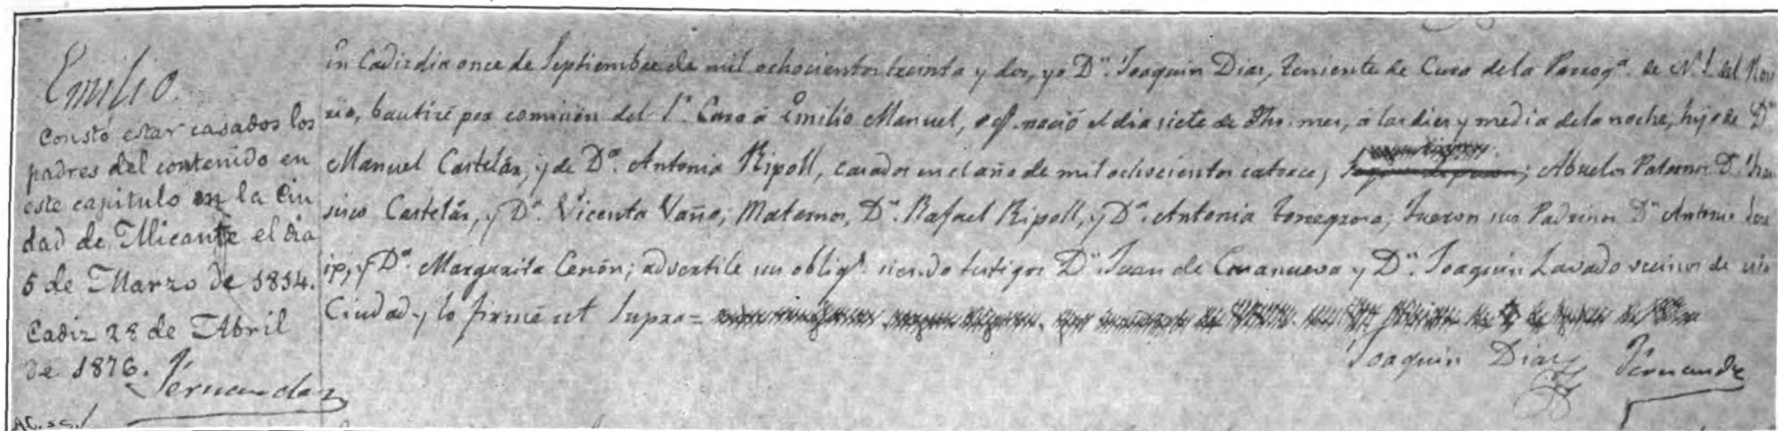 Emilio.
Constó estar casados los
padres del contenido en
este capitulo en la Ciu
dad de Alicante el dia
5 de Marzo de 1814.
Cadiz 28 de Abril
de 1876.
Fernandez
En Cadiz dia once de Septiembre de mil ochocientos treinta y dos, yo Dn. Joaquin Diaz, teniente de Cura de la Parroqa. de N. S. del Rosa
rio, bauticé por comision del Sr. Cura á Emilio Manuel, nació el dia siete de dho. mes, á las diez y media de la noche, hijo de Dn.
Manuel Castelár, y de Da. Antonia Ripoll, casados en el año de mil ochocientos catorce; Abuelos Paternos D.
Castelár, y Da. Vicenta Vañó; Maternos, Dn. Rafael Ripoll, y Da. Antonia Torregrosa; fueron sus Padrinos Dn. Antonio
y Da. Margarita Cenón; advertile su oblign. siendo testigos Dn. Juan de Casanueva y Dn. Joaquin Lavado vecinos de esta
Ciudad y lo firmé ut supra =
Joaquin Diaz Fernandez